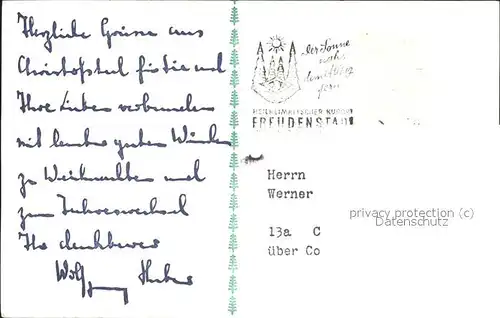 Herzliche Grüsse aus
Christofstal für Sie und
Ihre Lieben verbunden
mit guten Wünschen
zu Weihnachten und
zum Jahreswechsel
Ihr dankbarer
Wolfgang Huber
der Sonne
nah
dem Alltag
fern
HEILKLIMATISCHER KURORT
FREUDENSTADT
Herrn
Werner
privacy protection (c)
Datenschutz
13a C
über Co